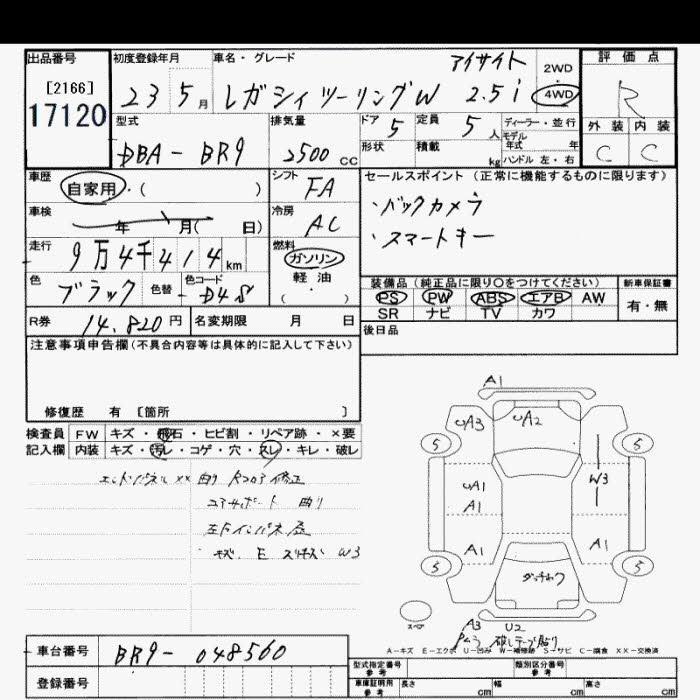 出品番号
[2166]
17120
初度登録年月
23 5月
車名・グレード
アイサイト
レガシィツーリングW 2.5i
2WD
4WD
評価点
R
外装 内装
C C
型式
DBA-BR9
排気量
2500 CC
ドア 5
定員 5人
形状
積載 kg
ディーラー・並行
モデル
年式 年
ハンドル 左・右
車歴
自家用・( )
シフト
FA
車検
年 月( 日)
冷房
AC
走行
9万4千414km
燃料
ガソリン
軽油
( )
色
ブラック
色替
色コード
D4S
R券 14,820円
名変期限 月 日
セールスポイント(正常に機能するものに限ります)
・バックカメラ
・スマートキー
装備品(純正品に限り〇をつけてください)
PS PW ABS エアB AW
SR ナビ TV カワ
新車保証書
有・無
後日品
注意事項申告欄(不具合内容等は具体的に記入して下さい)
修復歴 有 [箇所 ]
検査員
記入欄
FW キズ・飛石・ヒビ割・リペア跡・×要
内装 キズ・汚レ・コゲ・穴・スレ・キレ・破レ
エンドパネル××曲り Rコア修正
コアサポート 曲り
キズ、E スリキズ W3
A1
UA3
UA2
5
5
UA1
A1
W3
A1
A1
5
5
スペア
A3
U2
破レテープ貼り
A-キズ E-エクボ U-凹み W-補修跡 S-サビ C-腐食 ××-交換済
車台番号 BR9-048560
登録番号
型式指定番号
参考
類別区分番号
参考
車庫証明用
参考
長さ cm
幅 cm
高さ cm